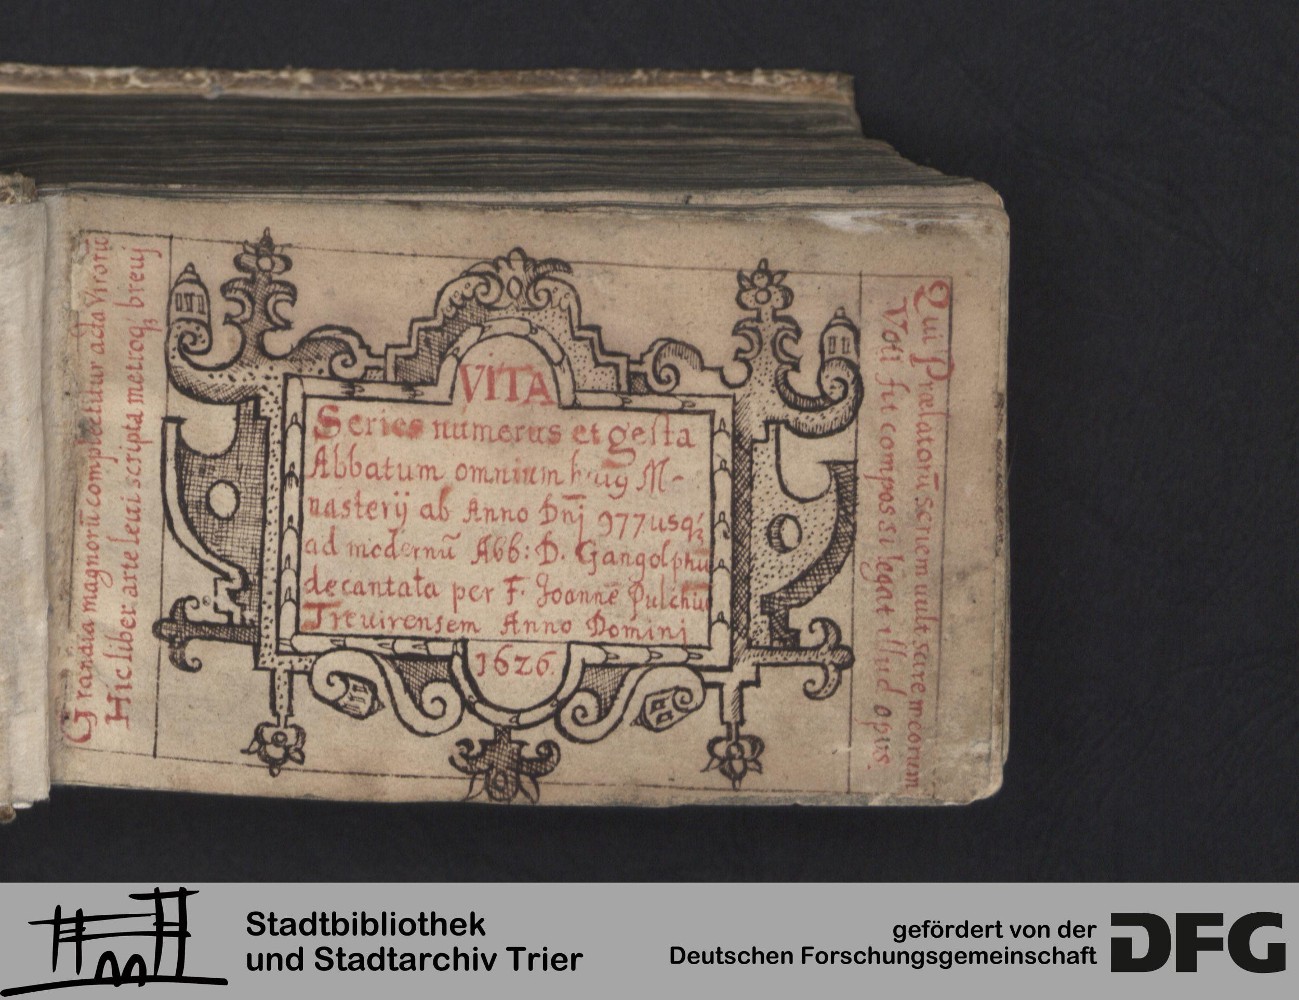 Grandia magnorū complectitur acta virorū
Hic liber arte leui scripta metroq; breuj
VITA
Series numerus et gesta
Abbatum omnium huiꝰ Mo-
nasterij ab Anno Dn̄j 977 usq;
ad modernū Abb: D. Gangolphū
decantata per F. Joannē Pulchrū
Treuirensem Anno Dominj
1626.
Qui Prælatorū seriem uult scire meorum
Voti fit compos si legat illud opus.
Stadtbibliothek
und Stadtarchiv Trier
gefördert von der
Deutschen Forschungsgemeinschaft
DFG